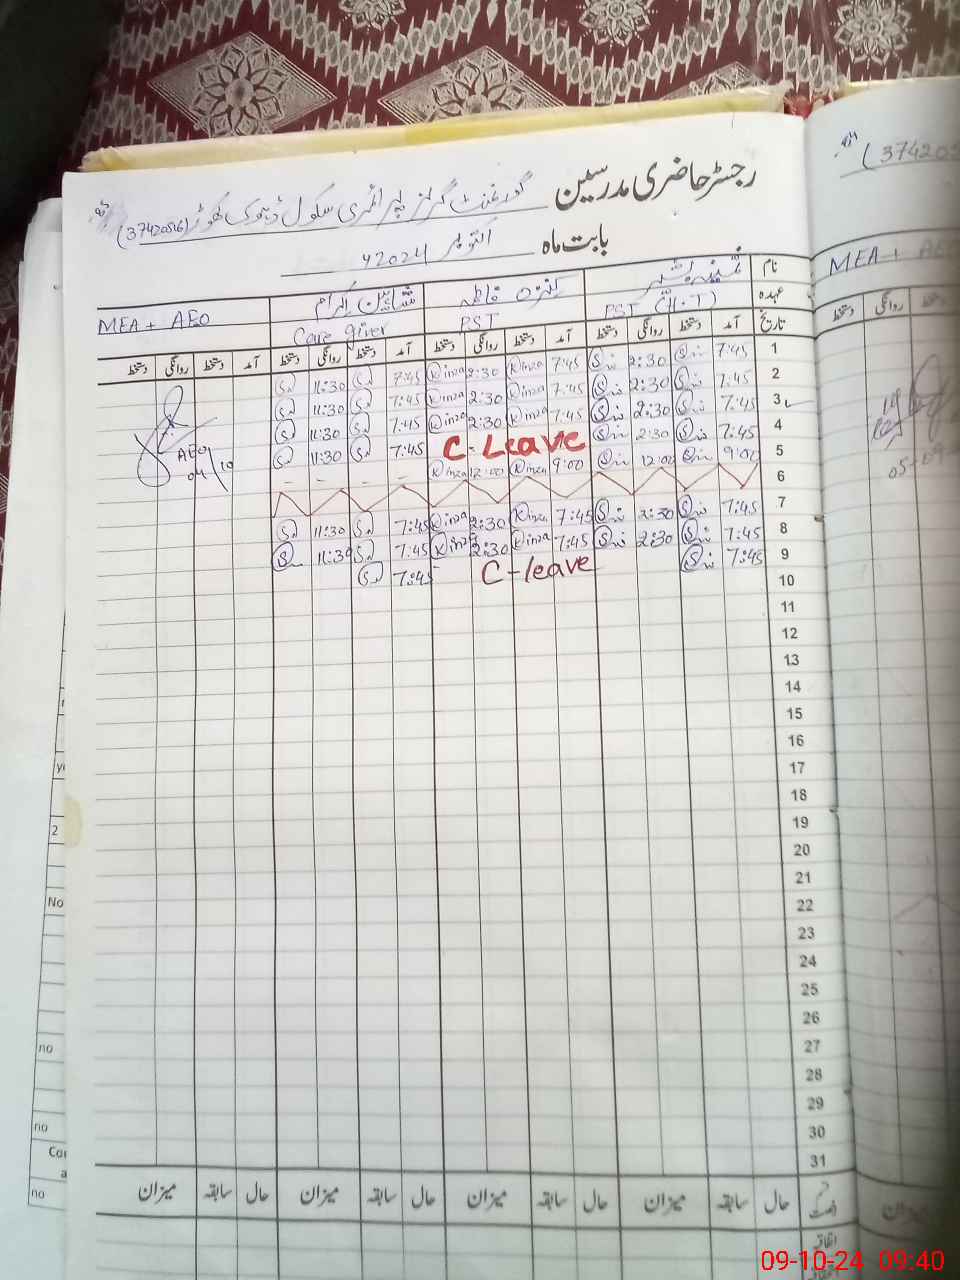 رجسٹر حاضری مدرسین گورنمنٹ گرلز پرائمری سکول ڈھوک کھوڑ (37420516)
بابت ماہ اکتوبر 2024ء
(3742051
نام
عہدہ
تاریخ
کنزہ فاطمہ
شاہین اکرام
MEA + AEO
MEA + AE
PST (H.T)
PST
Care giver
آمد دستخط روانگی دستخط آمد دستخط روانگی دستخط آمد دستخط روانگی دستخط آمد دستخط روانگی دستخط
1 7:45 2:30 7:45 Kinza 2:30 Kinza 7:45 11:30
2 7:45 2:30 7:45 Kinza 2:30 Kinza 7:45 11:30
3 7:45 2:30 7:45 Kinza 2:30 Kinza 7:45 11:30
4 7:45 2:30 C-Leave 7:45 11:30
AEO
04/10
5 9:00 12:00 9:00 Kinza 12:00 Kinza - - - -
6
7 7:45 2:30 7:45 Kinza 2:30 Kinza 7:45 11:30
8 7:45 2:30 7:45 Kinza 2:30 Kinza 7:45 11:30
9 7:45 C-leave 7:45
10
11
12
13
14
15
16
17
18
19
20
21
22
23
24
25
26
27
28
29
30
31
حال سابقہ میزان حال سابقہ میزان حال سابقہ میزان حال سابقہ میزان
2
No
no
no
no
09-10-24 09:40